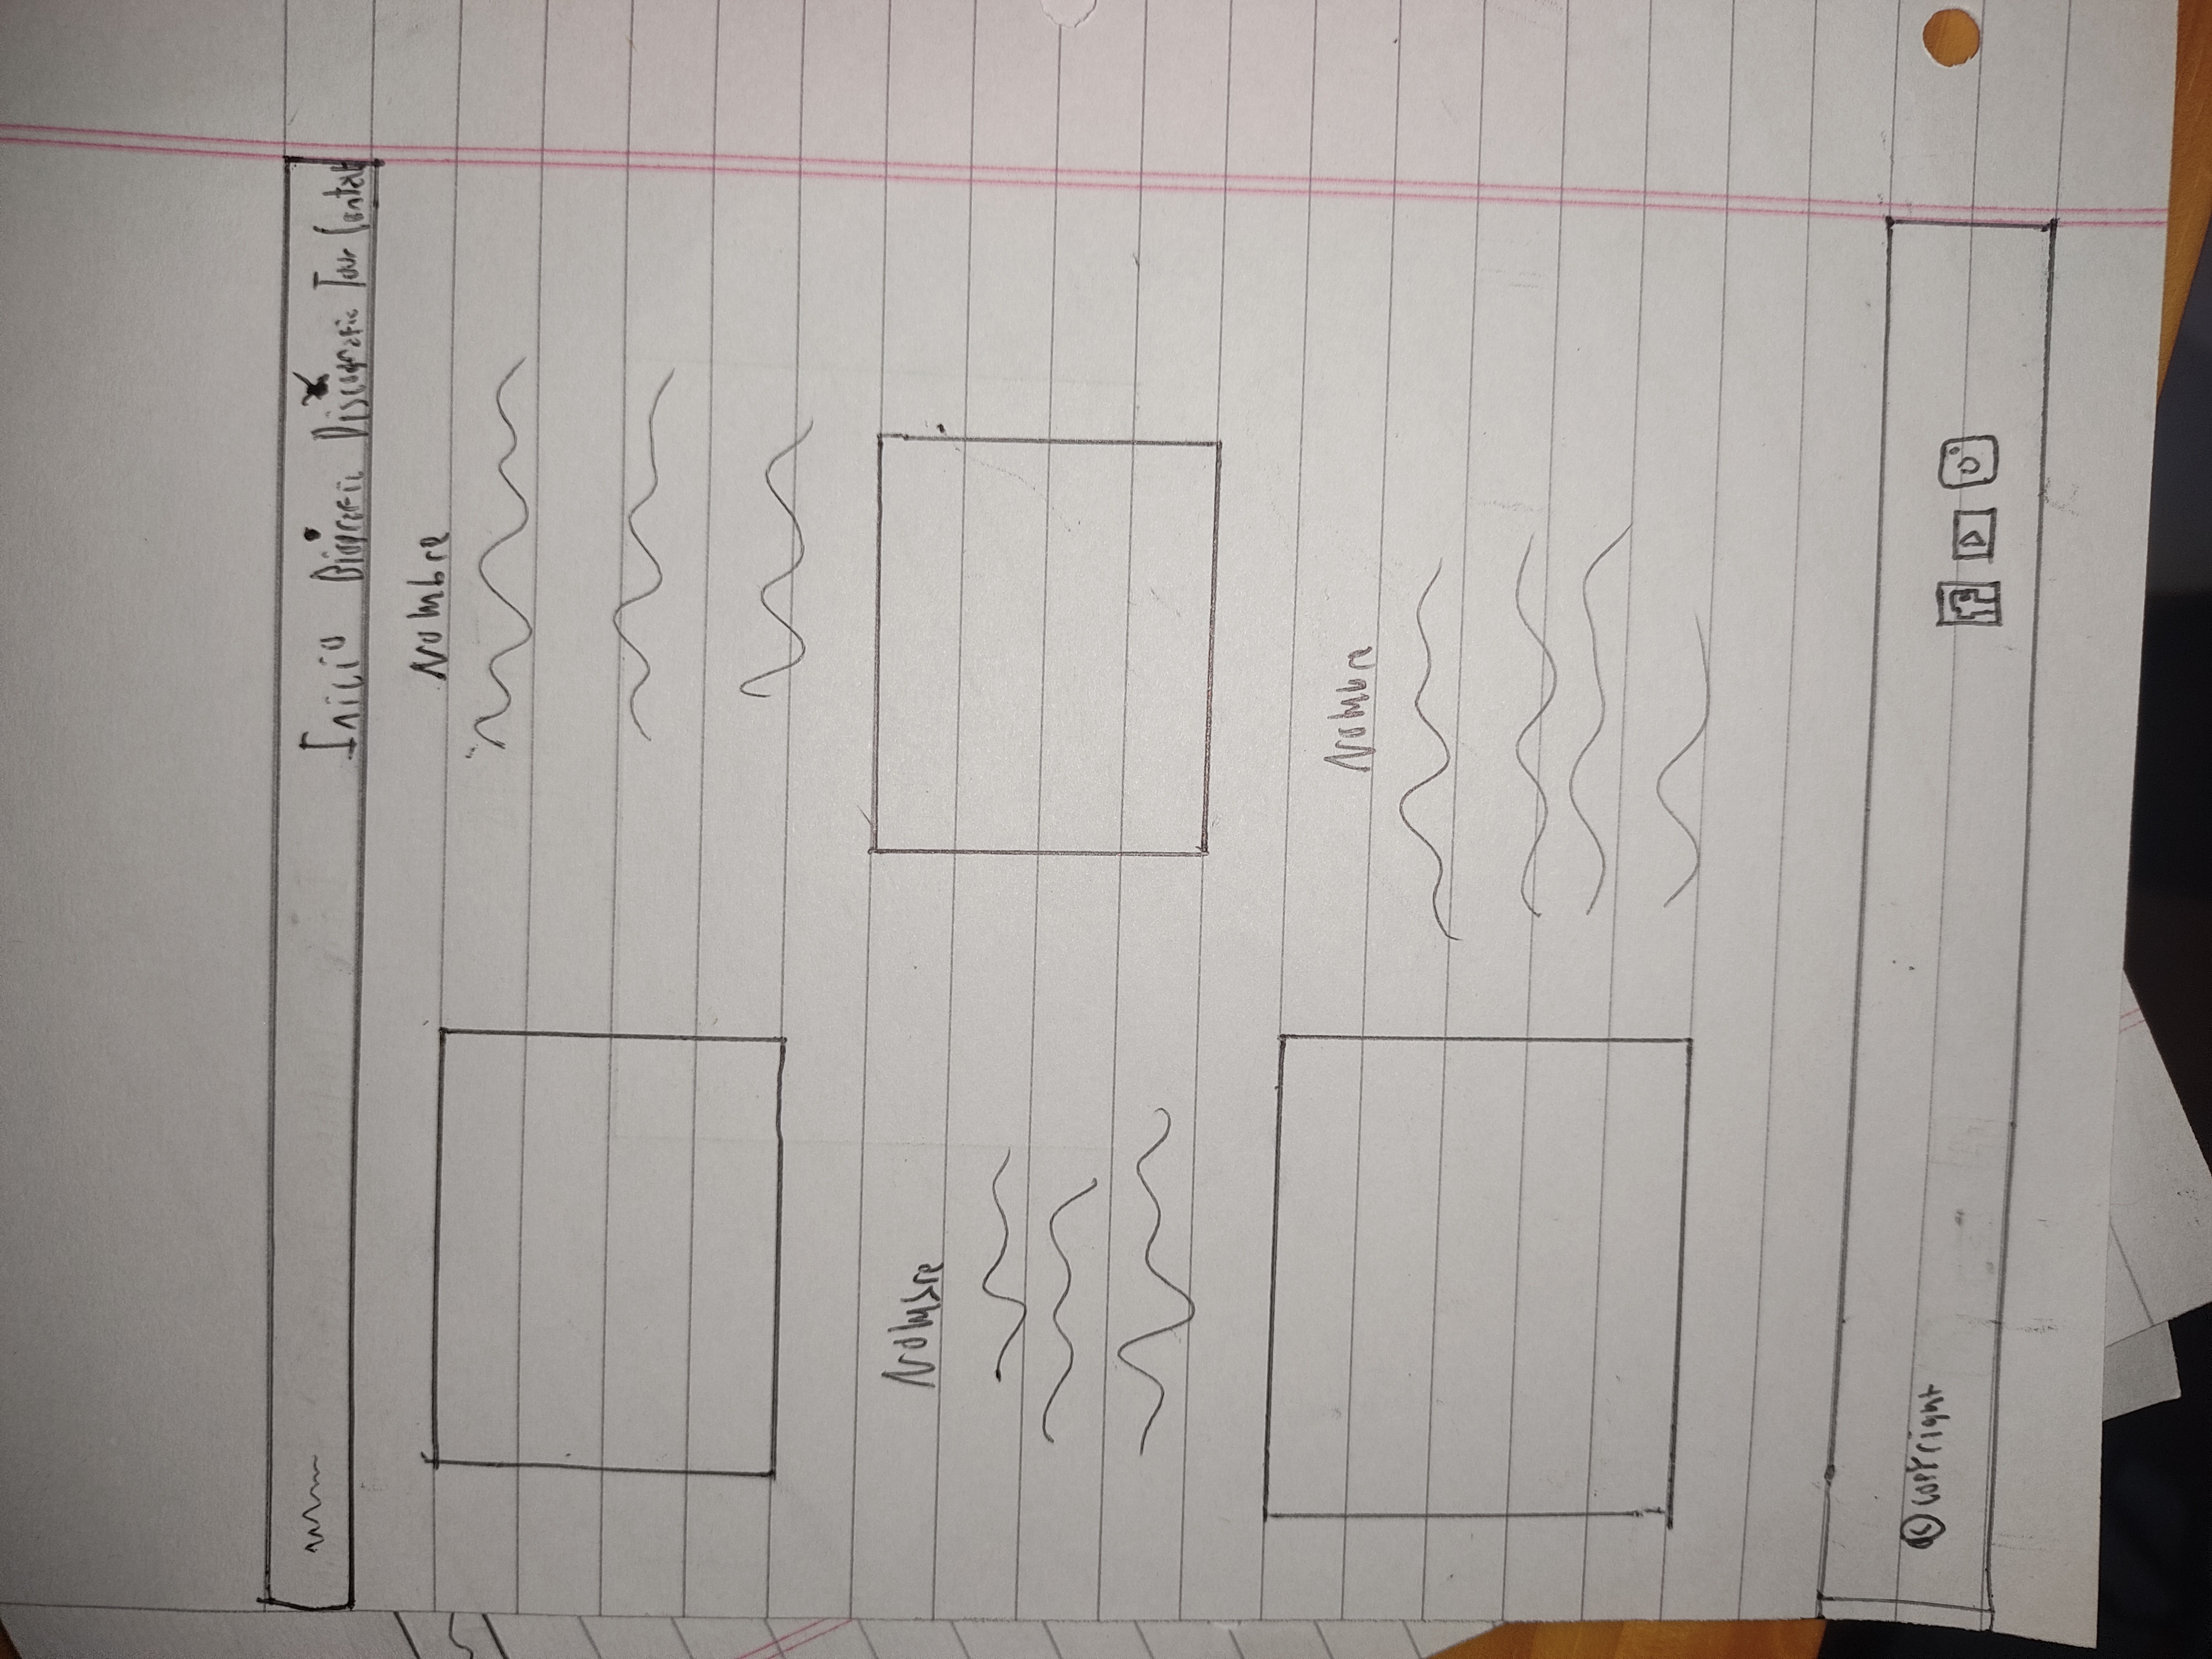 Inicio Biografia Discografia Tour Contact
Nombre
Nombre
Nombre
© copyright